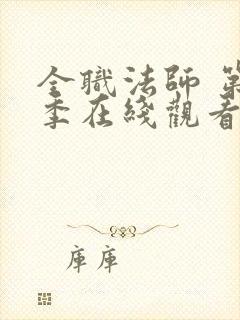 全職法師 第
季在綫觀看
庫庫